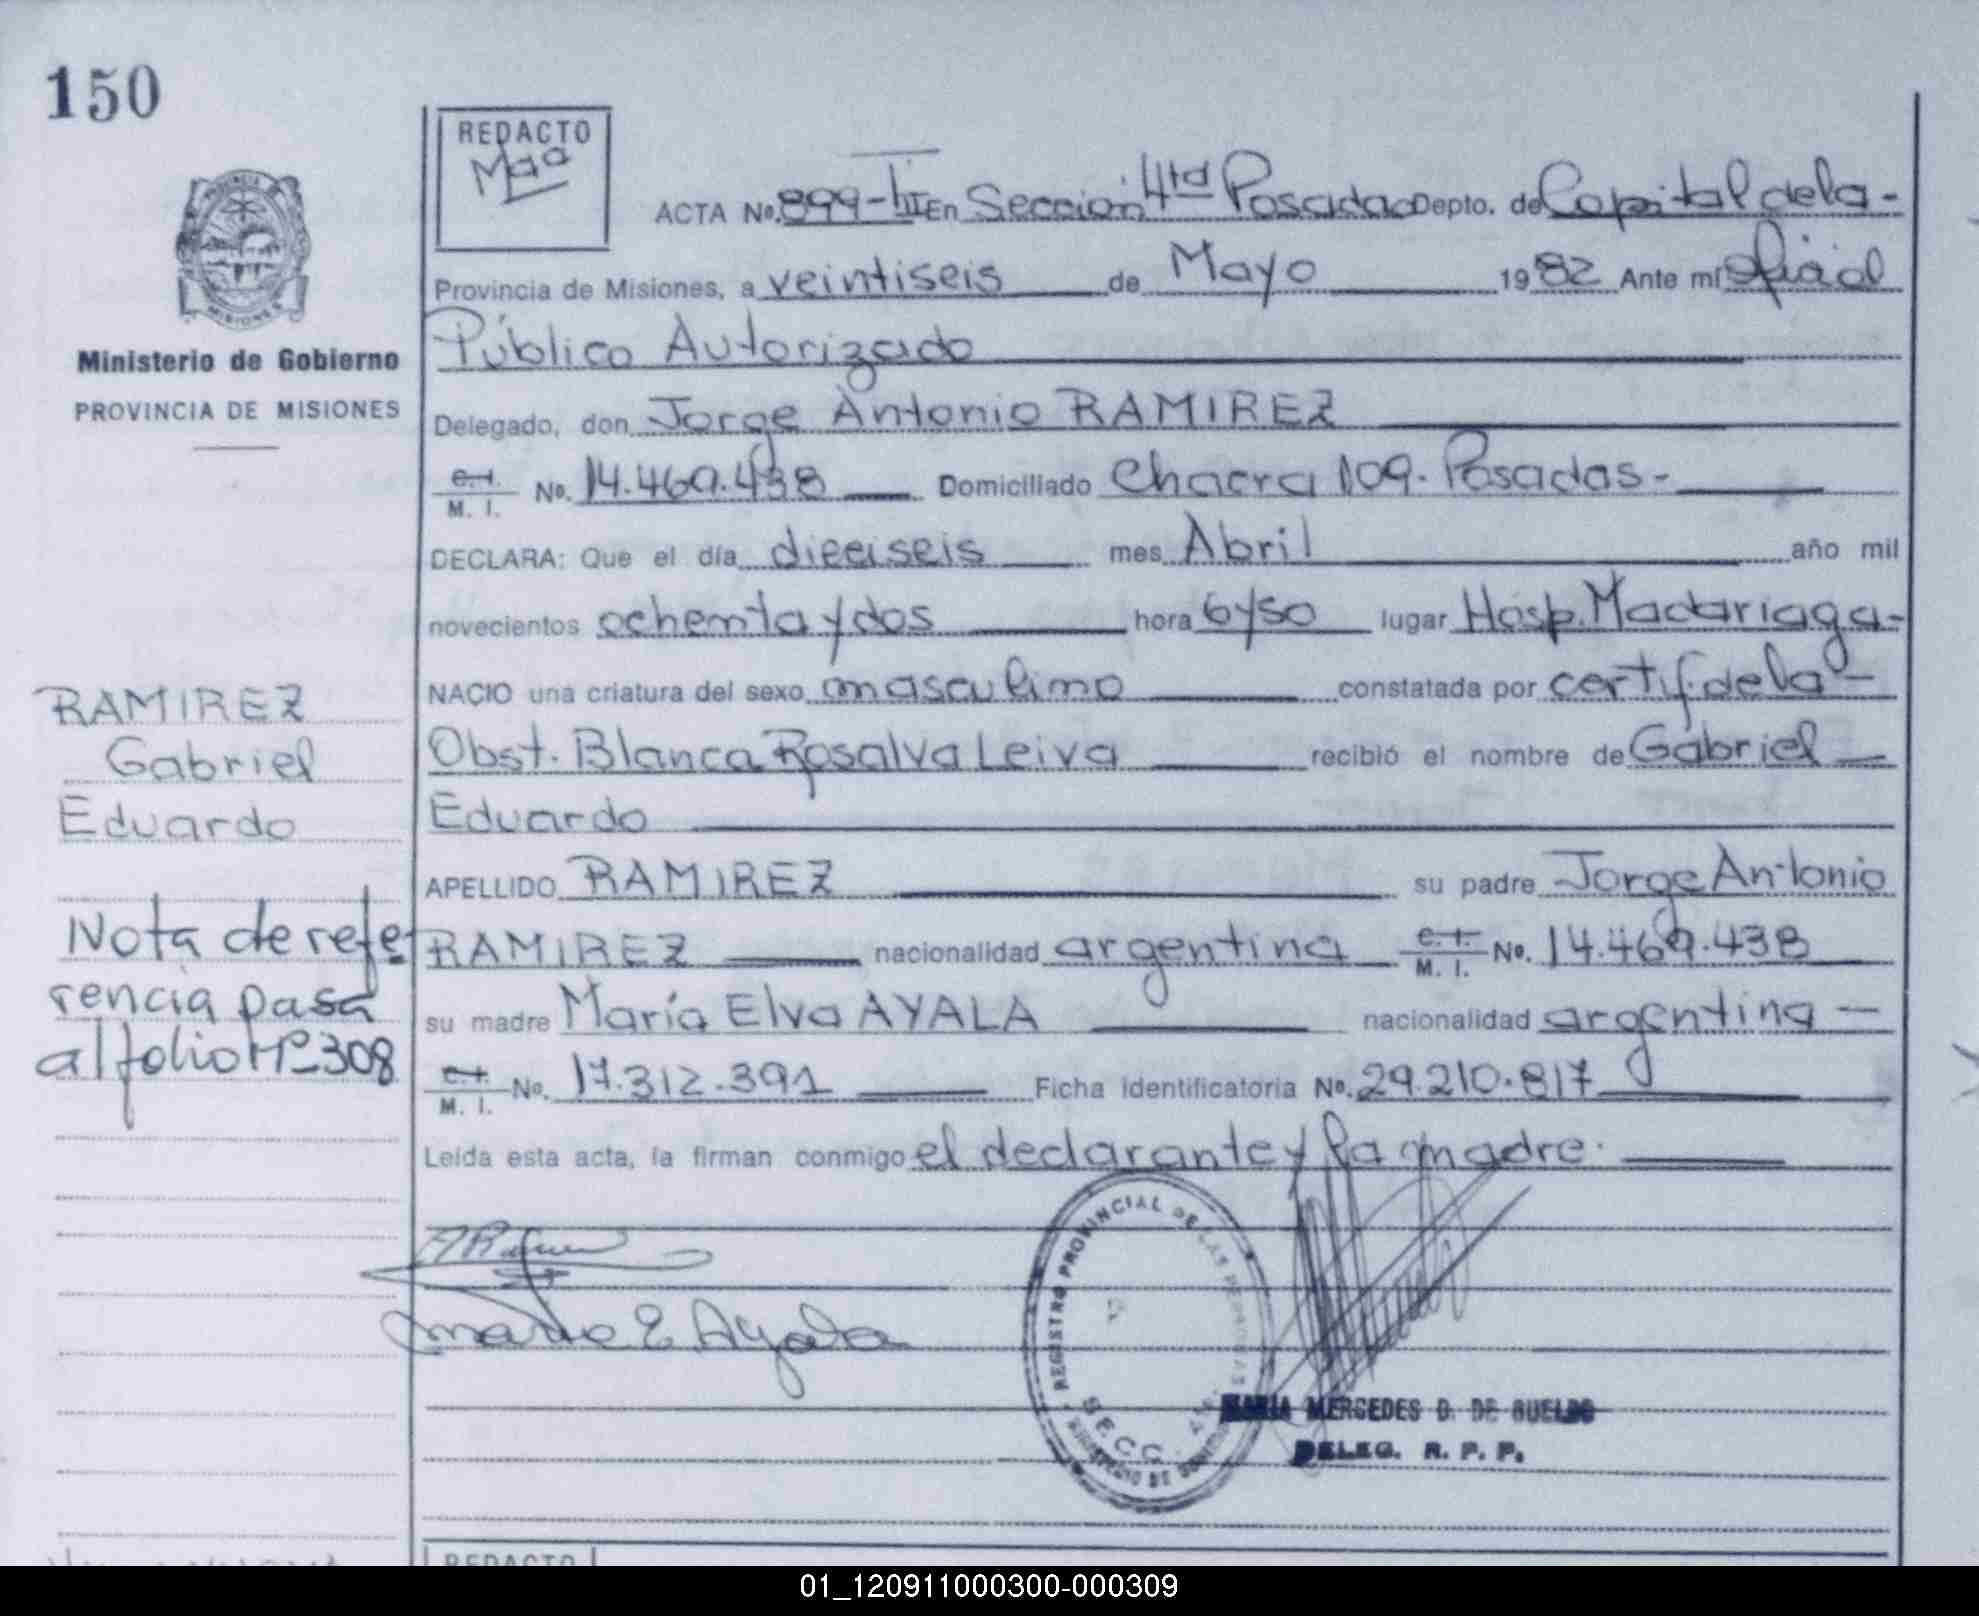 150
REDACTO
Mao
ACTA No. 899-III En Sección 4ta Posadas Depto. de Capital de la-
Provincia de Misiones, a veintiseis de Mayo 1982 Ante mí Oficial
Público Autorizado
Delegado, don Jorge Antonio RAMIREZ
C.I. M. I. No. 14.469.438 Domiciliado Chacra 109. Posadas-
DECLARA: Que el día dieciseis mes Abril año mil
novecientos ochenta y dos hora 6y50 lugar Hosp. Madariaga-
NACIO una criatura del sexo masculino constatada por certif. de la-
Obst. Blanca Rosalva Leiva recibió el nombre de Gabriel
Eduardo
APELLIDO RAMIREZ su padre Jorge Antonio
RAMIREZ nacionalidad argentina C.I. M. I. No. 14.469.438
su madre María Elva AYALA nacionalidad argentina
C.I. M. I. No. 17.312.391 Ficha identificatoria No. 29.210.817
Leída esta acta, la firman conmigo el declarante y la madre.
Maria E Ayala
REGISTRO PROVINCIAL DE LAS PERSONAS
SECC.
MINISTERIO DE GOBIERNO
MARIA MERCEDES D. DE SUELDO
DELEG. R. P. P.
REDACTO
PROVINCIA DE
MISIONES
Ministerio de Gobierno
PROVINCIA DE MISIONES
RAMIREZ
Gabriel
Eduardo
Nota de refe-
rencia pasa
al folio Nº 308
01_120911000300-000309